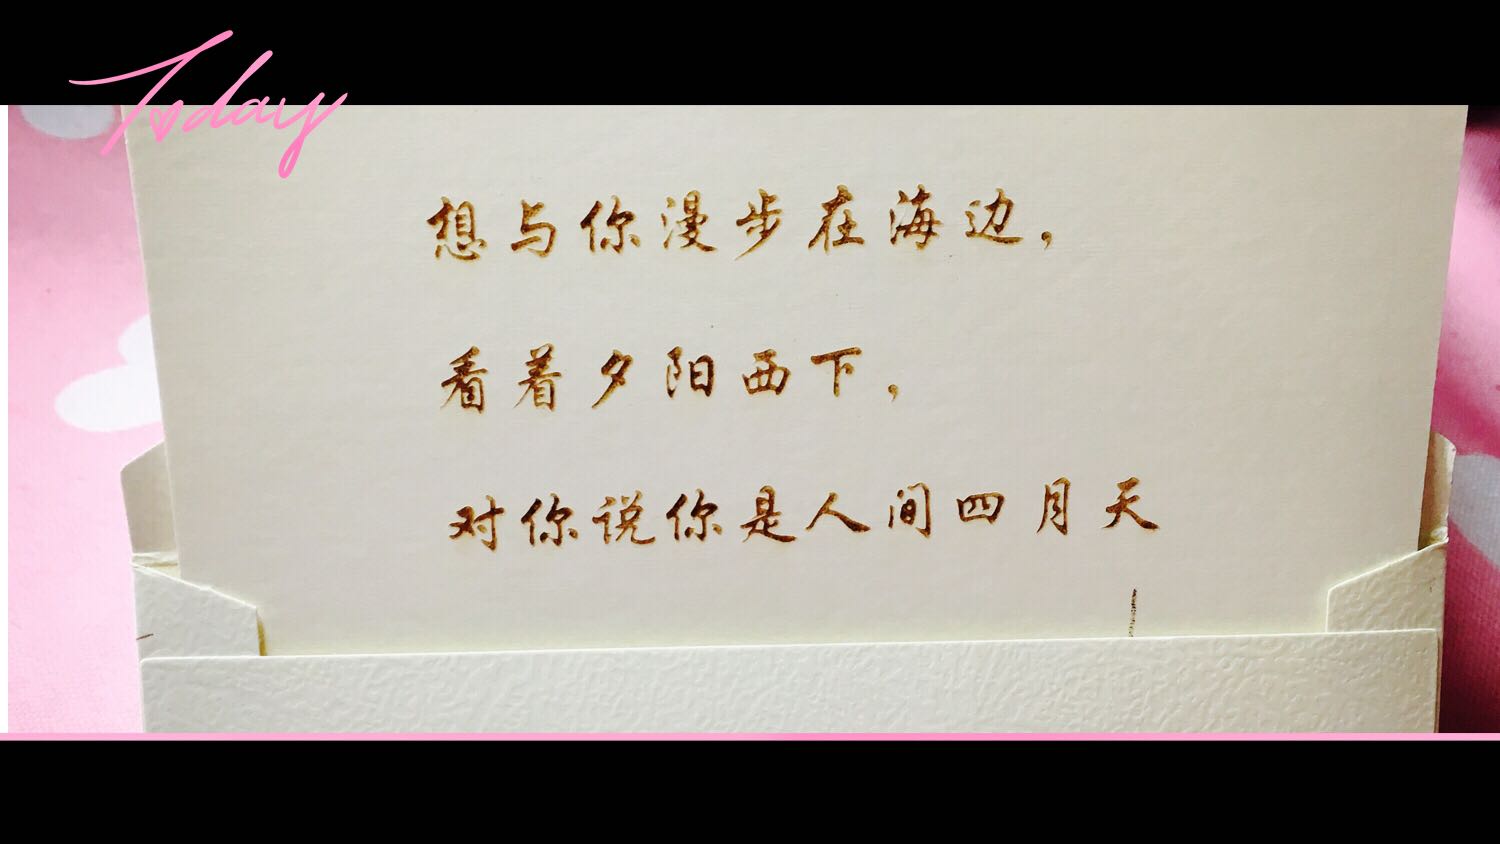 Today
想与你漫步在海边，
看着夕阳西下，
对你说你是人间四月天